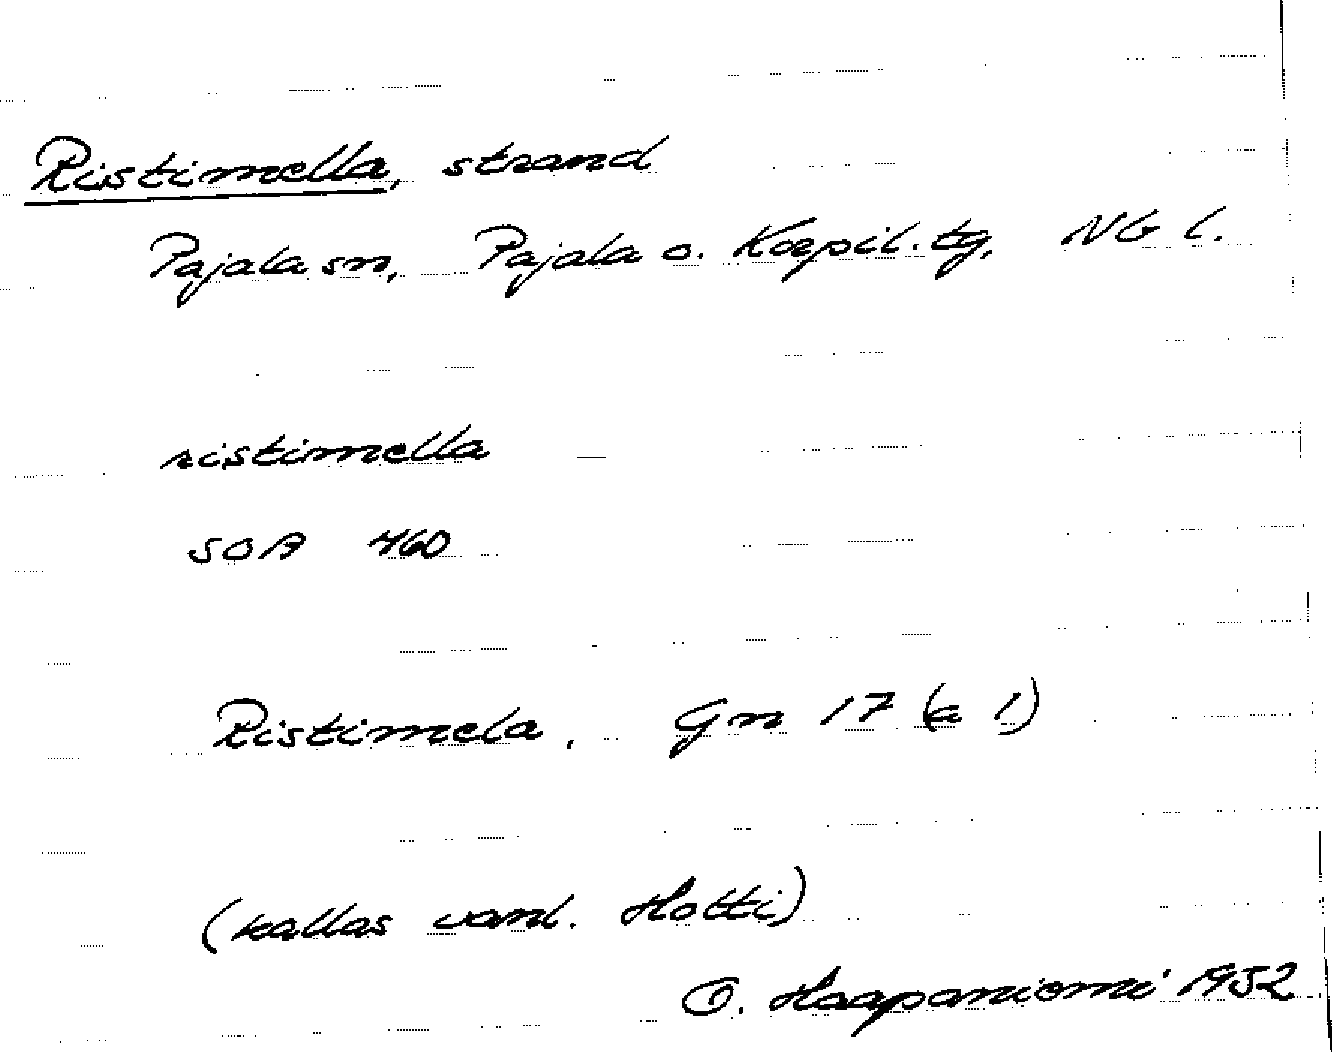 Ristimella, strand
Pajala sn, Pajala o. Korpil. tg, NG l.
ristimella
SOA 460
Ristimela, Gn 17 (a 1)
(kallas vanl. Hotti)
O. Haapaniemi 1952